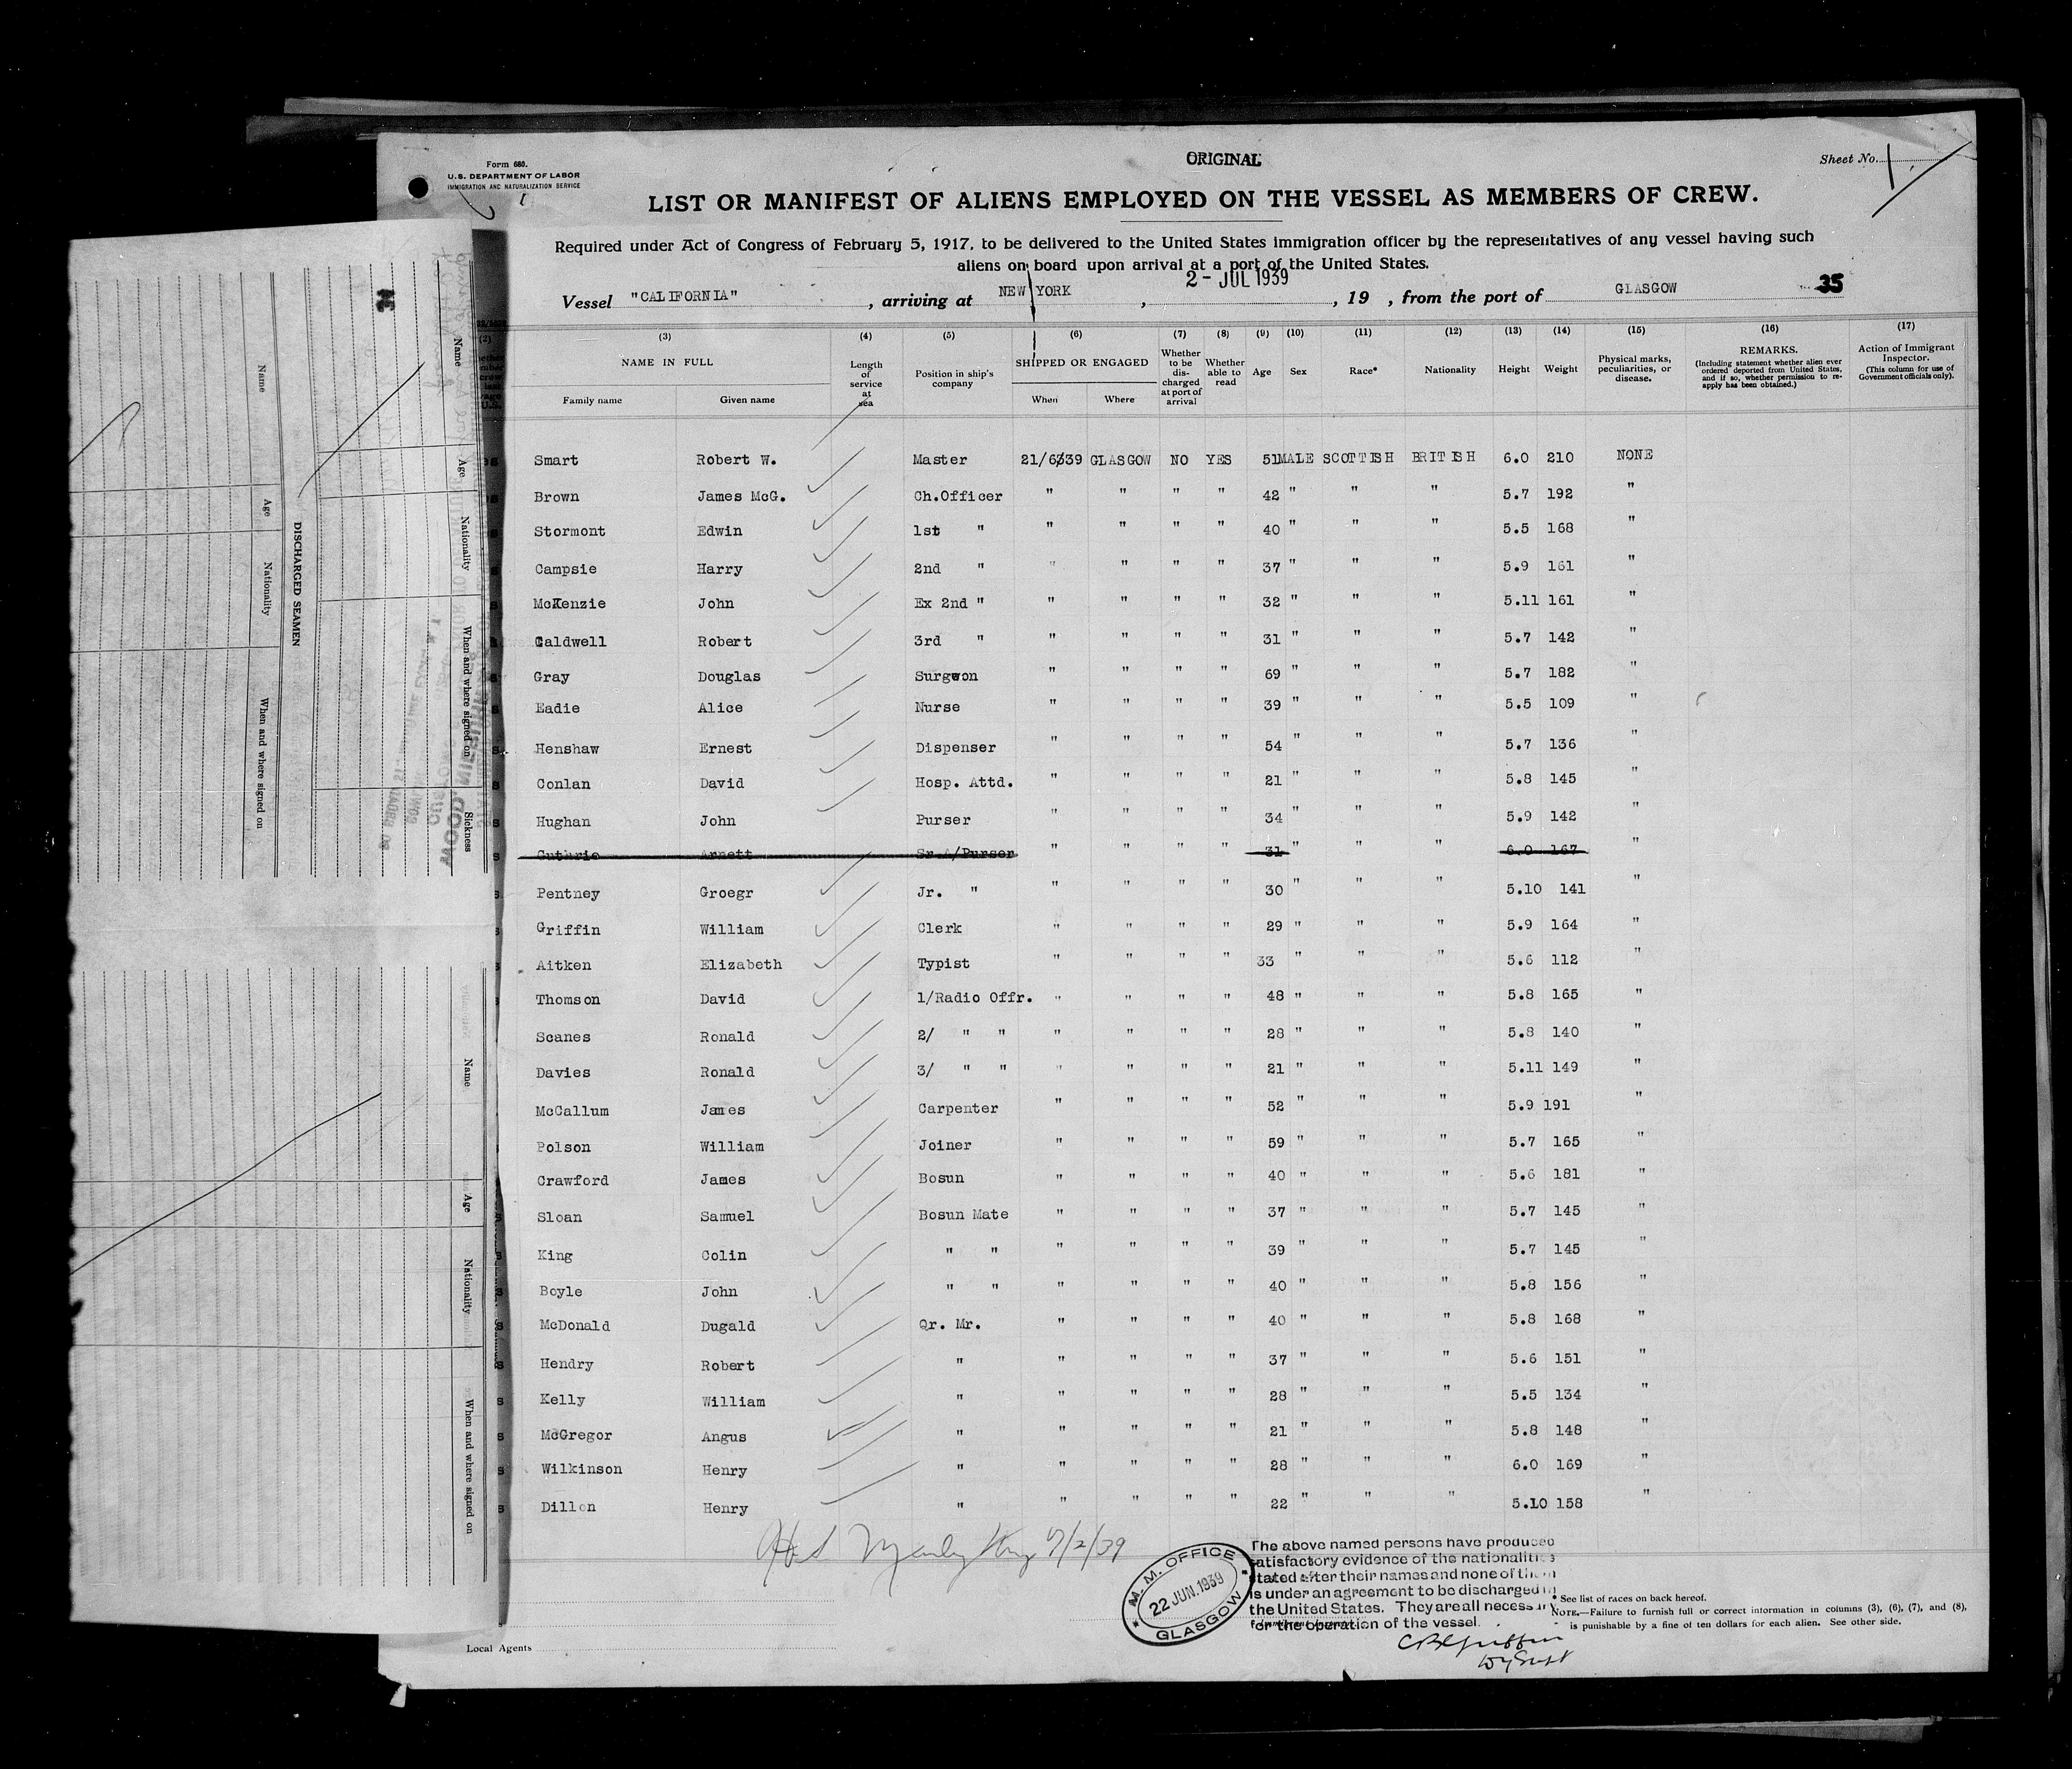 Form 680.
U.S. DEPARTMENT OF LABOR
IMMIGRATION AND NATURALIZATION SERVICE
ORIGINAL
Sheet No. 1.
LIST OR MANIFEST OF ALIENS EMPLOYED ON THE VESSEL AS MEMBERS OF CREW.
Required under Act of Congress of February 5, 1917, to be delivered to the United States immigration officer by the representatives of any vessel having such
aliens on board upon arrival at a port of the United States.
Vessel "CALIFORNIA", arriving at NEW YORK, 2 - JUL 1939, 19 , from the port of GLASGOW 35
(3) (4) (5) (6) (7) (8) (9) (10) (11) (12) (13) (14) (15) (16) (17)
NAME IN FULL Family name Given name Length of service at sea Position in ship's company SHIPPED OR ENGAGED When Where Whether to be discharged at port of arrival Whether able to read Age Sex Race* Nationality Height Weight Physical marks, peculiarities, or disease. REMARKS. (Including statement whether alien ever ordered deported from United States, and if so, whether permission to reapply has been obtained.) Action of Immigrant Inspector. (This column for use of Government officials only).
Smart Robert W. Master 21/6/39 GLASGOW NO YES 51 MALE SCOTTISH BRITISH 6.0 210 NONE
Brown James McG. Ch.Officer " " " " 42 " " " 5.7 192 "
Stormont Edwin 1st " " " " " 40 " " " 5.5 168 "
Campsie Harry 2nd " " " " " 37 " " " 5.9 161 "
McKenzie John Ex 2nd " " " " " 32 " " " 5.11 161 "
Caldwell Robert 3rd " " " " " 31 " " " 5.7 142 "
Gray Douglas Surgeon " " " " 69 " " " 5.7 182 "
Eadie Alice Nurse " " " " 39 " " " 5.5 109 "
Henshaw Ernest Dispenser " " " " 54 " " " 5.7 136 "
Conlan David Hosp. Attd. " " " " 21 " " " 5.8 145 "
Hughan John Purser " " " " 34 " " " 5.9 142 "
Guthrie Arnett Sr A/Purser " " " " 31 " " " 6.0 167 "
Pentney Groegr Jr. " " " " " 30 " " " 5.10 141 "
Griffin William Clerk " " " " 29 " " " 5.9 164 "
Aitken Elizabeth Typist " " " " 33 " " " 5.6 112 "
Thomson David 1/Radio Offr. " " " " 48 " " " 5.8 165 "
Scanes Ronald 2/ " " " " " " 28 " " " 5.8 140 "
Davies Ronald 3/ " " " " " " 21 " " " 5.11 149 "
McCallum James Carpenter " " " " 52 " " " 5.9 191 "
Polson William Joiner " " " " 59 " " " 5.7 165 "
Crawford James Bosun " " " " 40 " " " 5.6 181 "
Sloan Samuel Bosun Mate " " " " 37 " " " 5.7 145 "
King Colin " " " " " " 39 " " " 5.7 145 "
Boyle John " " " " " " 40 " " " 5.8 156 "
McDonald Dugald Qr. Mr. " " " " 40 " " " 5.8 168 "
Hendry Robert " " " " " 37 " " " 5.6 151 "
Kelly William " " " " " 28 " " " 5.5 134 "
McGregor Angus " " " " " 21 " " " 5.8 148 "
Wilkinson Henry " " " " " 28 " " " 6.0 169 "
Dillon Henry " " " " " 22 " " " 5.10 158 "
7/2/39
M. M. OFFICE
22 JUN. 1939
GLASGOW
The above named persons have produced
satisfactory evidence of the nationalities
stated after their names and none of them
is under an agreement to be discharged in
the United States. They are all necessary
for the operation of the vessel.
* See list of races on back hereof.
NOTE.—Failure to furnish full or correct information in columns (3), (6), (7), and (8),
is punishable by a fine of ten dollars for each alien. See other side.
Local Agents
34
DISCHARGED SEAMEN
Name Age Nationality When and where signed on
Name Age Nationality When and where signed on Sickness
Name Age Nationality When and where signed on